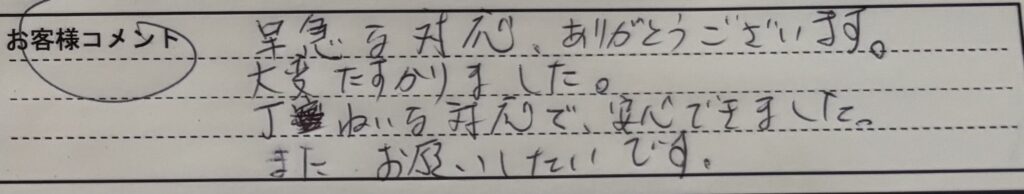 お客様コメント
早急な対応、ありがとうございます。
大変たすかりました。
丁ねいな対応で、安心できました。
また お願いしたいです。